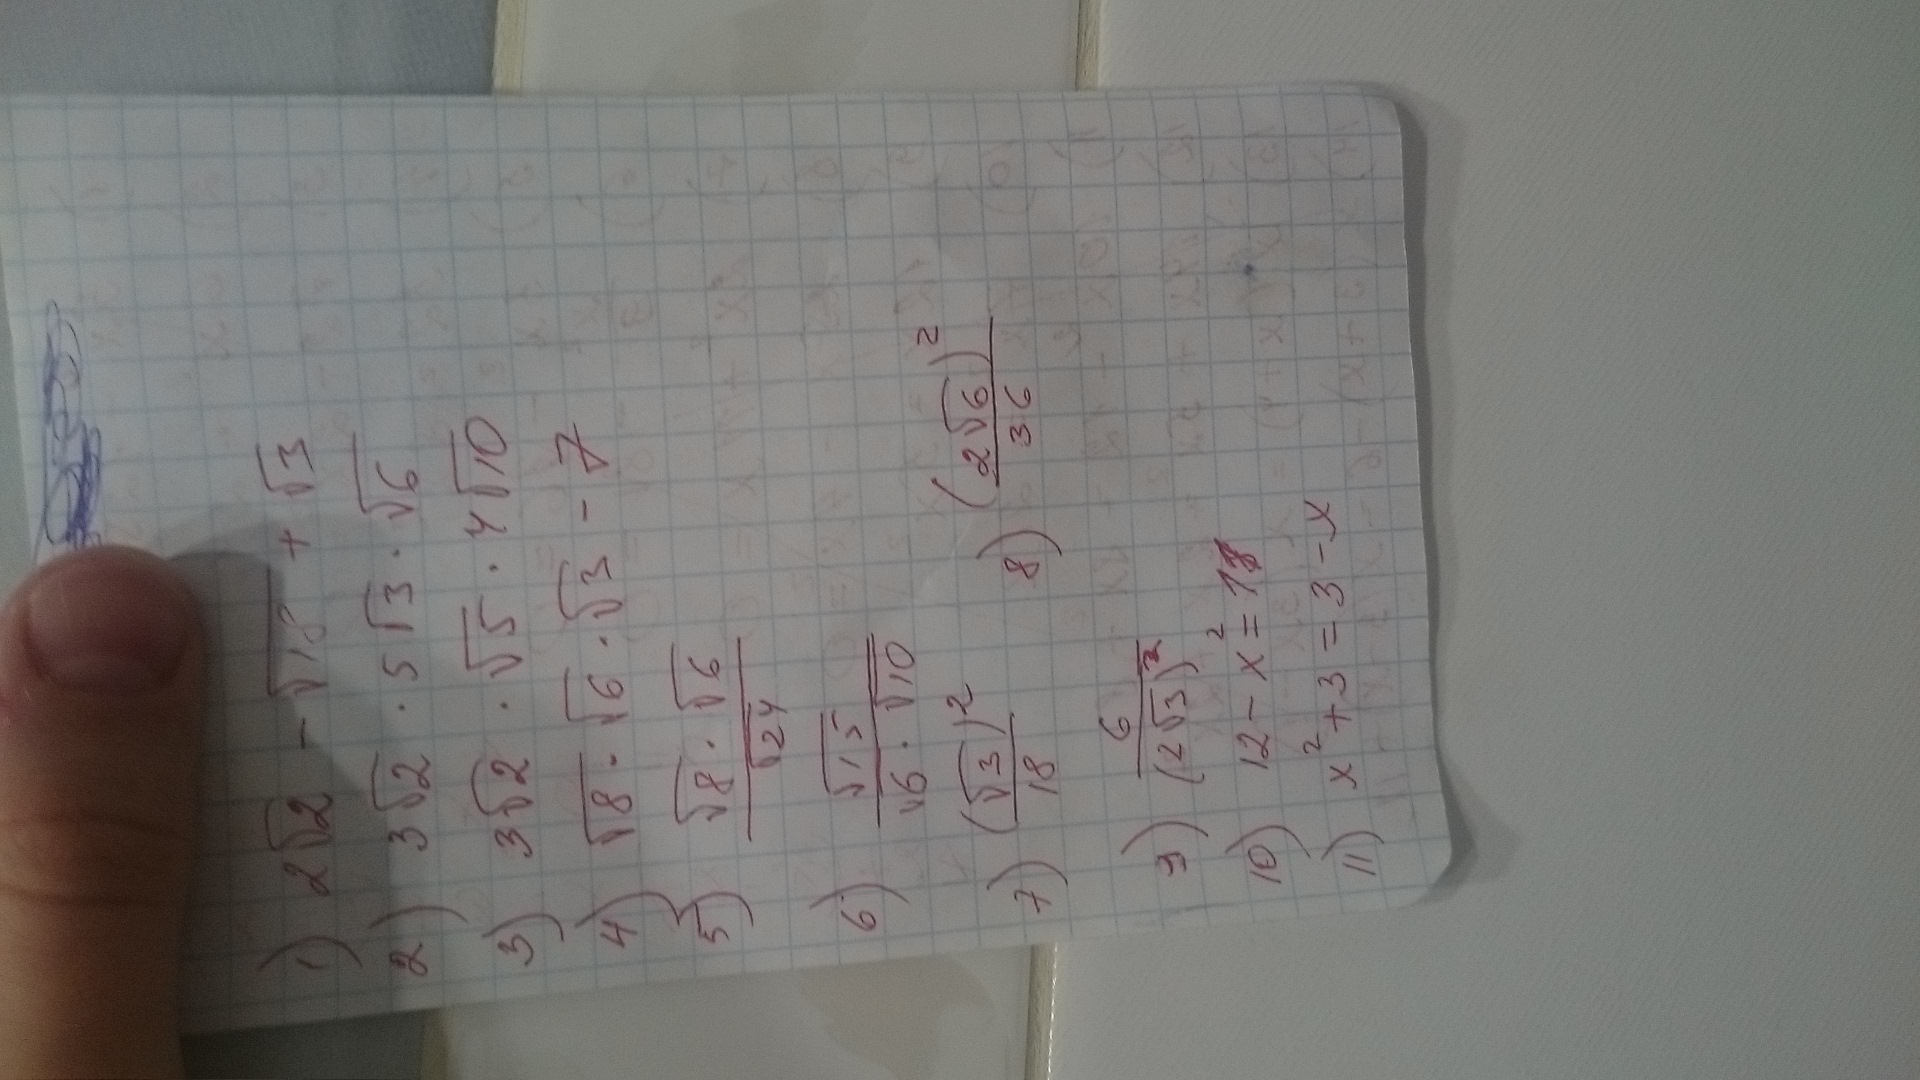 1) 2√2 - √18 + √3
2) 3√2 · 5√3 · √6
3) 3√2 · √5 · 4√10
4) √8 · √6 · √3 - 7
5) √8 · √6 / √24
6) √15 / √6 · √10
7) (√3)² / 18
8) (2√6)² / 36
9) 6 / (2√3)²
10) 12 - x² = 11
11) x² + 3 = 3 - x